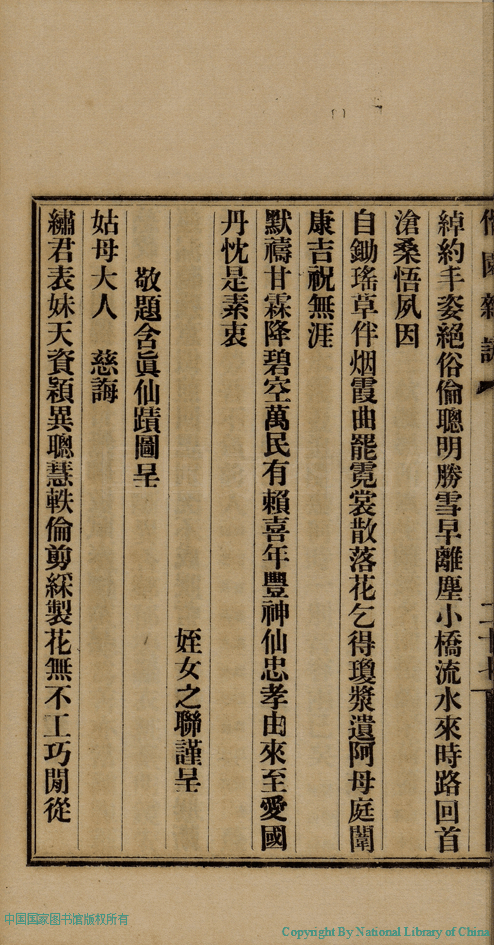 綽約丰姿絕俗倫聰明勝雪早離塵小橋流水來時路回首
滄桑悟夙因
自鋤瑤草伴烟霞曲罷霓裳散落花乞得瓊漿遺阿母庭闈
康吉祝無涯
默禱甘霖降碧空萬民有賴喜年豐神仙忠孝由來至愛國
丹忱是素衷
姪女之聯謹呈
敬題含眞仙蹟圖呈
姑母大人 慈誨
繡君表妹天資穎異聰慧軼倫剪綵製花無不工巧閒從
中国国家图书馆版权所有
Copyright By National Library of China